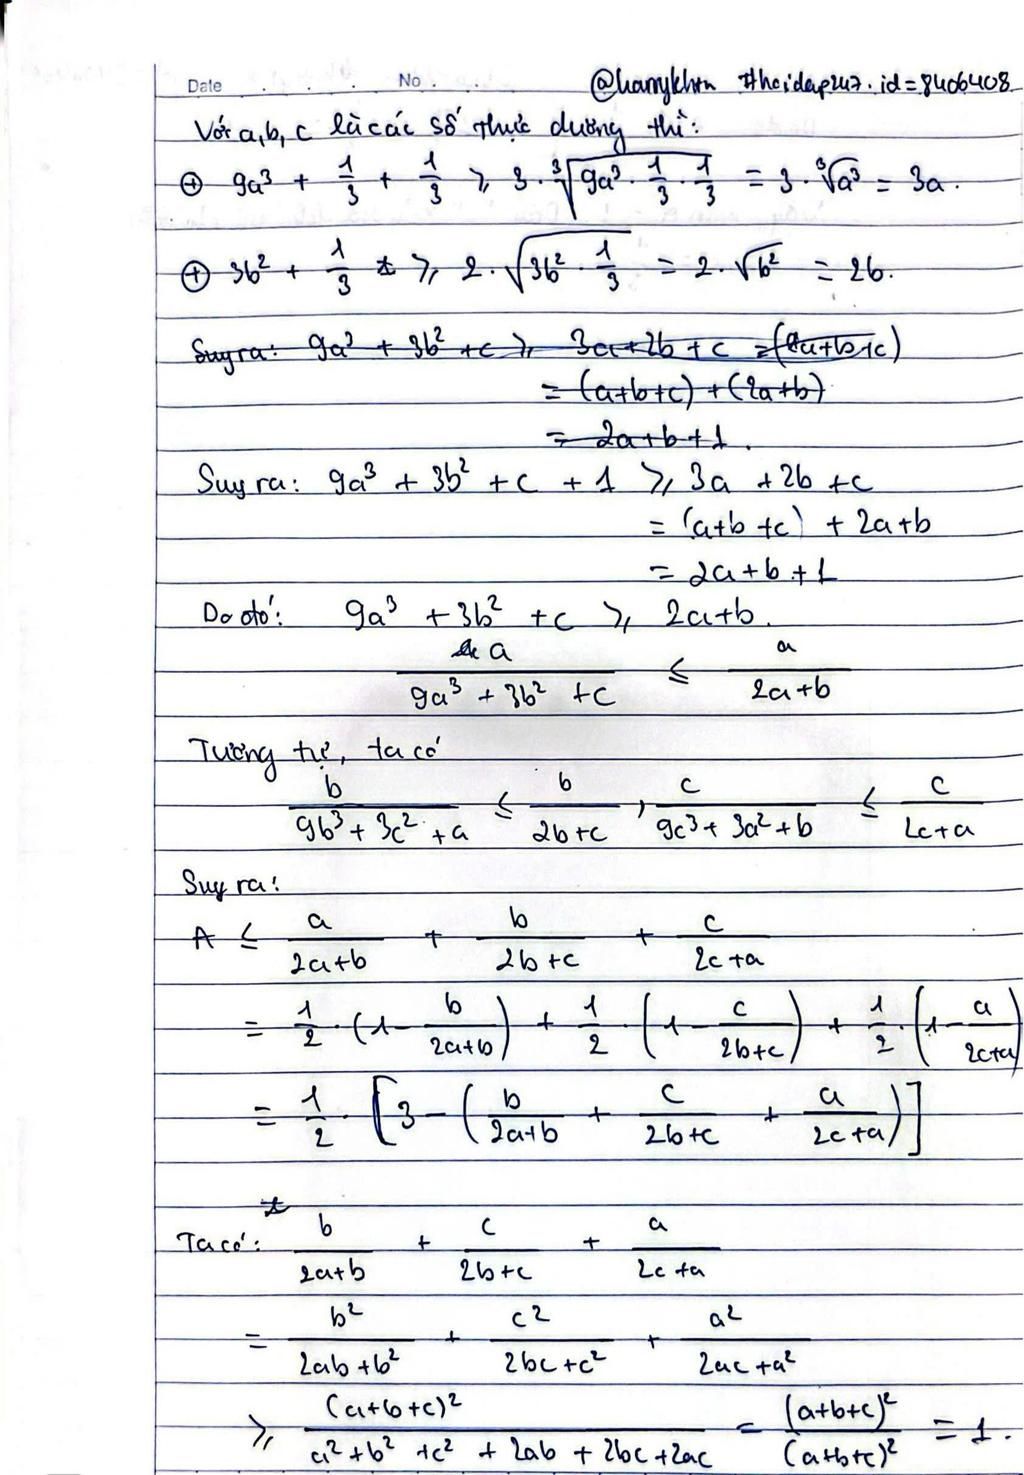 Date . . . . No . . @harrykhm #hoidap247. id=8406408
Với a,b,c là các số thực dương thì:
⊕ 9a³ + 1/3 + 1/3 ≥ 3.∛(9a³ . 1/3 . 1/3) = 3.∛a³ = 3a.
⊕ 3b² + 1/3 ≥ 2.√(3b² . 1/3) = 2.√b² = 2b.
Suy ra: 9a³ + 3b² + c ≥ 3a+2b + c = (2a+b+c)
= (a+b+c) + (2a+b)
= 2a+b+1.
Suy ra: 9a³ + 3b² + c + 1 ≥ 3a + 2b + c
= (a+b+c) + 2a+b
= 2a+b+1
Do đó: 9a³ + 3b² + c ≥ 2a+b.
a/(9a³ + 3b² + c) ≤ a/(2a+b)
Tương tự, ta có
b/(9b³ + 3c² + a) ≤ b/(2b+c), c/(9c³ + 3a² + b) ≤ c/(2c+a)
Suy ra:
A ≤ a/(2a+b) + b/(2b+c) + c/(2c+a)
= 1/2 . (1 - b/(2a+b)) + 1/2 . (1 - c/(2b+c)) + 1/2 . (1 - a/(2c+a))
= 1/2 . [3 - (b/(2a+b) + c/(2b+c) + a/(2c+a))]
Ta có: b/(2a+b) + c/(2b+c) + a/(2c+a)
= b²/(2ab+b²) + c²/(2bc+c²) + a²/(2ac+a²)
≥ (a+b+c)²/(a²+b²+c² + 2ab + 2bc + 2ac) = (a+b+c)²/(a+b+c)² = 1.